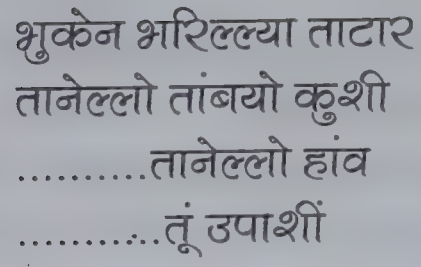 भुकेन भरिल्ल्या ताटार
तानेल्लो तांबयो कुशी
..........तानेल्लो हांव
..........तूं उपाशीं